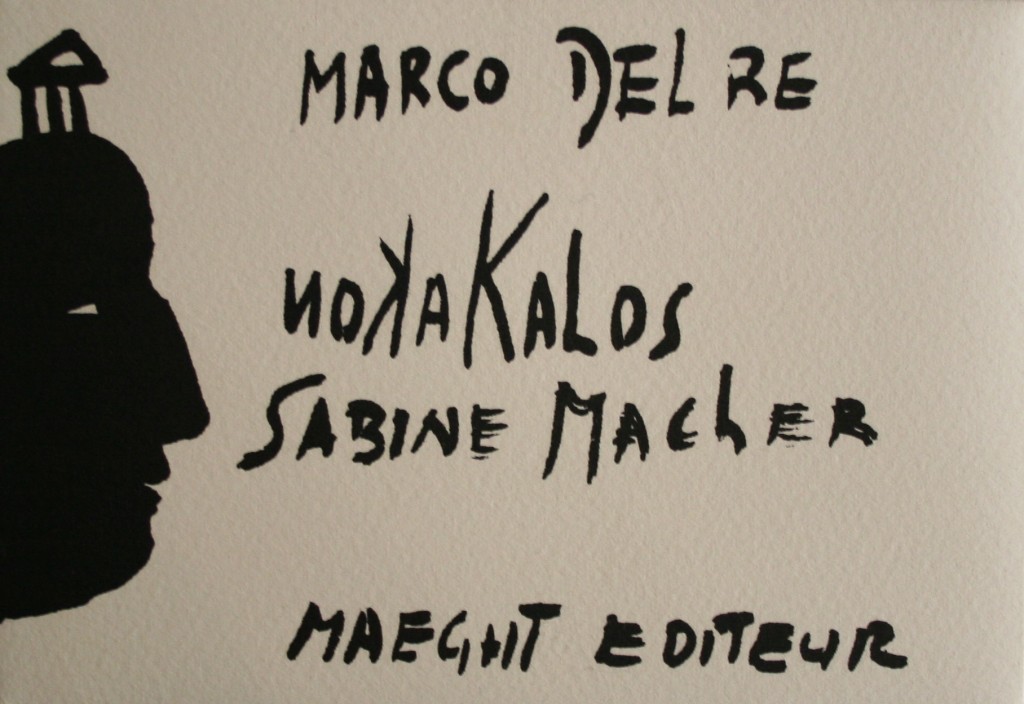 MARCO DEL RE
noKaKaLos
SABINE MACHER
MAEGHT EDITEUR